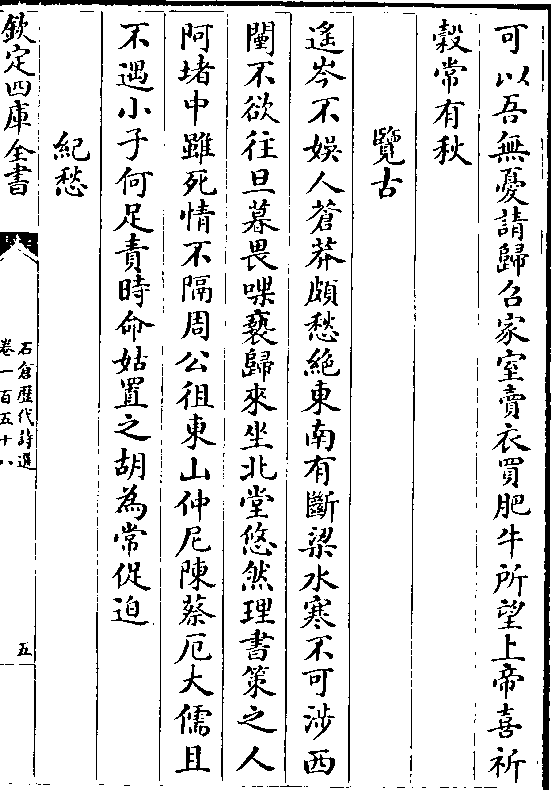 可以吾無憂請歸召家室賣衣買肥牛所望上帝喜祈
穀常有秋
覽古
遥岑不娱人蒼莽頗愁絶東南有斷梁水寒不可涉西
闉不欲往旦暮畏喋䙝歸來坐北堂悠然理書策之人
阿堵中雖死情不隔周公徂東山仲尼陳蔡厄大儒且
不遇小子何足責時命姑置之胡為常促迫
紀愁
欽定四庫全書
石倉歴代詩選
卷一百五十八
五